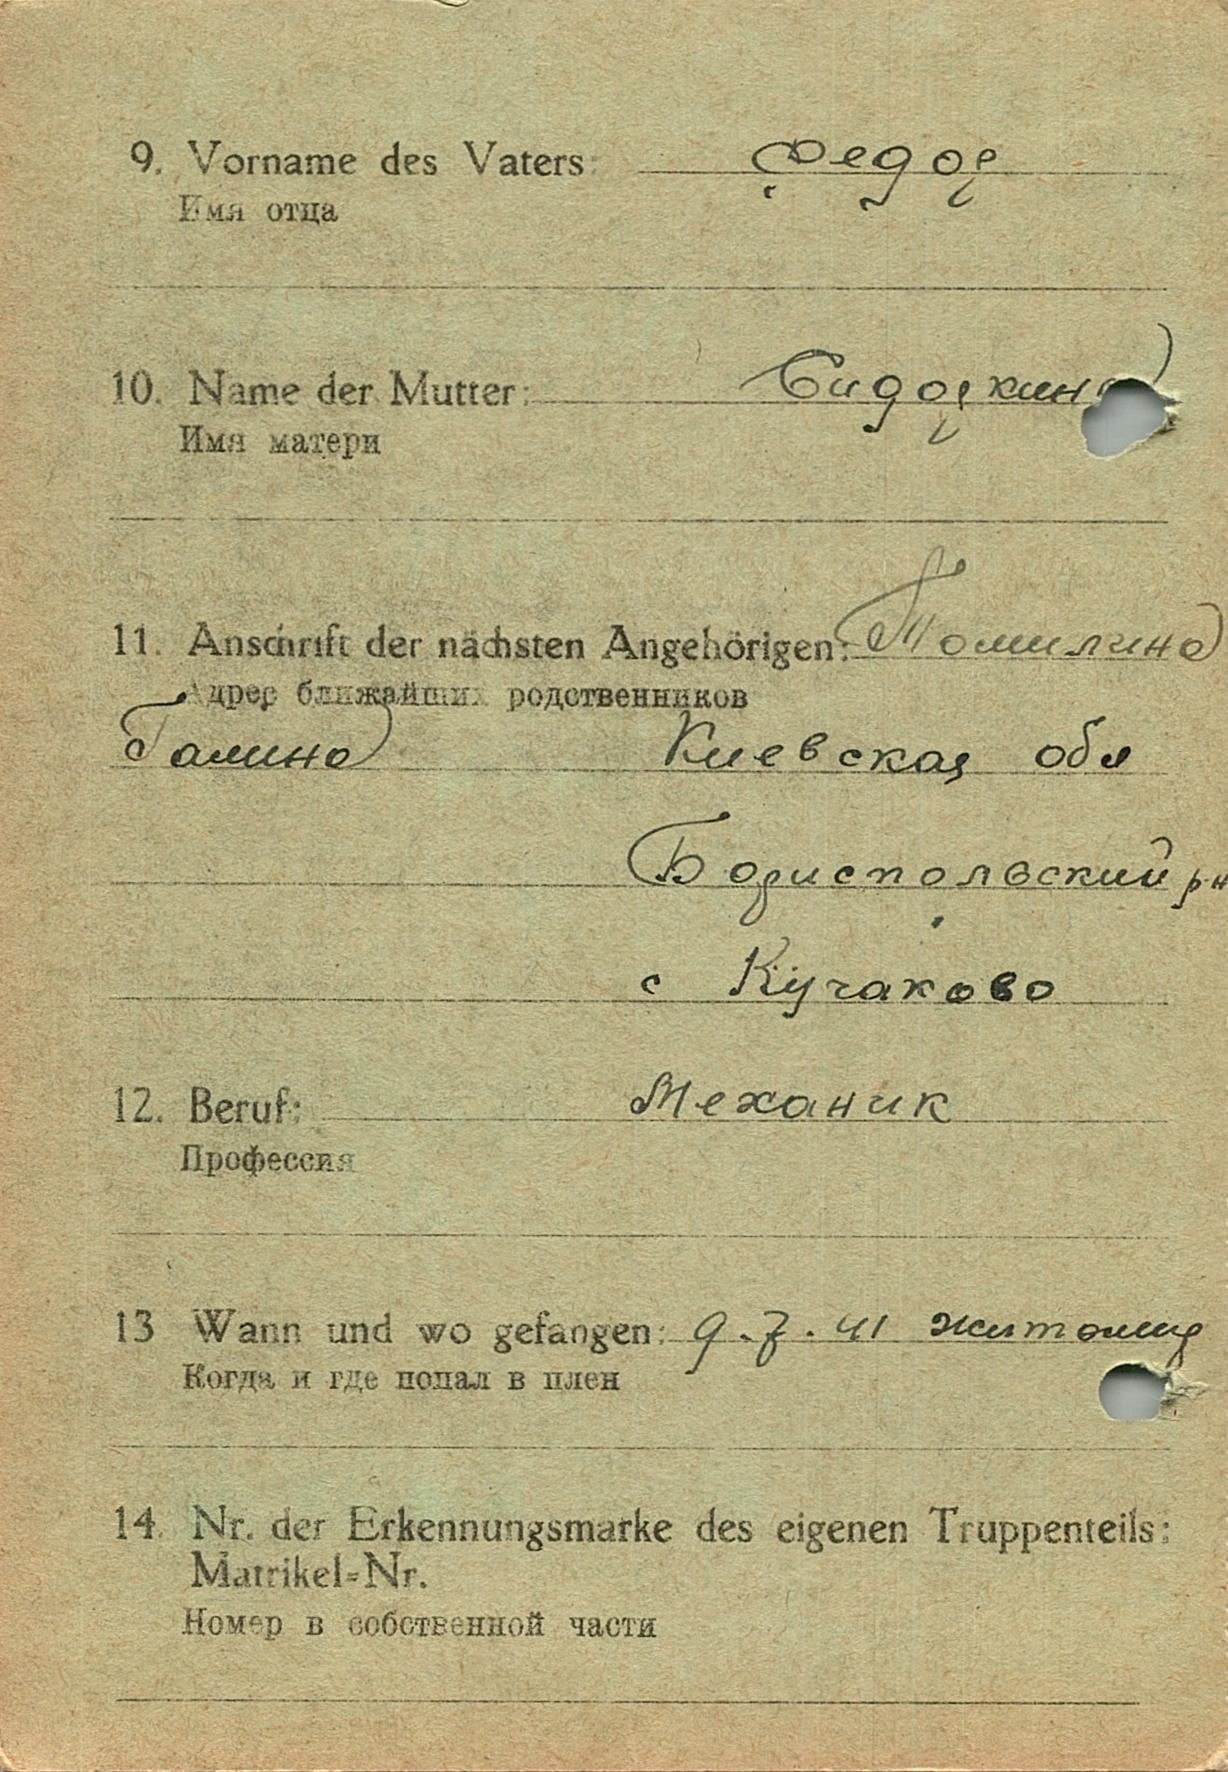 9. Vorname des Vaters: Федор
Имя отца
10. Name der Mutter: Сидоркина
Имя матери
11. Anschrift der nächsten Angehörigen: Томилина
Адрес ближайших родственников
Галина Киевская обл
Бориспольский р-н
с Кучаково
12. Beruf: Механик
Профессия
13 Wann und wo gefangen: 9.7.41 житомир
Когда и где попал в плен
14. Nr. der Erkennungsmarke des eigenen Truppenteils:
Matrikel=Nr.
Номер в собственной части